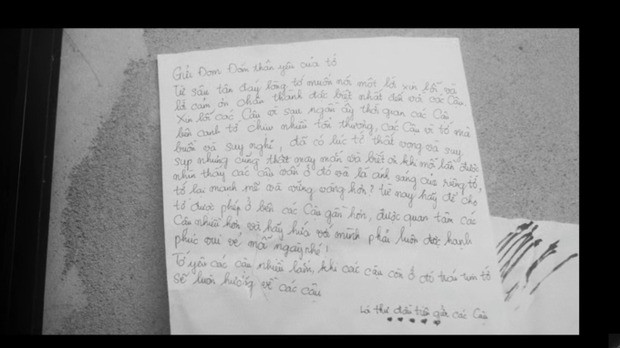 Gửi Đom Đóm thân yêu của tớ
Từ sâu tận đáy lòng tớ muốn nói một lời xin lỗi và
lời cảm ơn chân thành đặc biệt nhất đến với các Cậu.
Xin lỗi các Cậu vì sau ngần ấy thời gian các Cậu
bên cạnh tớ chịu nhiều tổn thương, các Cậu vì tớ mà
buồn và suy nghĩ, đã có lúc tớ thất vọng và suy
sụp nhưng cũng thật may mắn và biết ơn khi một lần được
nhìn thấy các cậu vẫn ở đó và là ánh sáng của riêng tớ,
tớ lại mạnh mẽ và vững vàng hơn? từ nay hãy để cho
tớ được phép ở bên các Cậu gần hơn, được quan tâm các
Cậu nhiều hơn và hãy hứa với mình phải luôn được hạnh
phúc vui vẻ mỗi ngày nhé!
Tớ yêu các cậu nhiều lắm, khi các cậu còn ở đó trái tim tớ
sẽ luôn hướng về các cậu
Lá thư đầu tiên gửi các Cậu